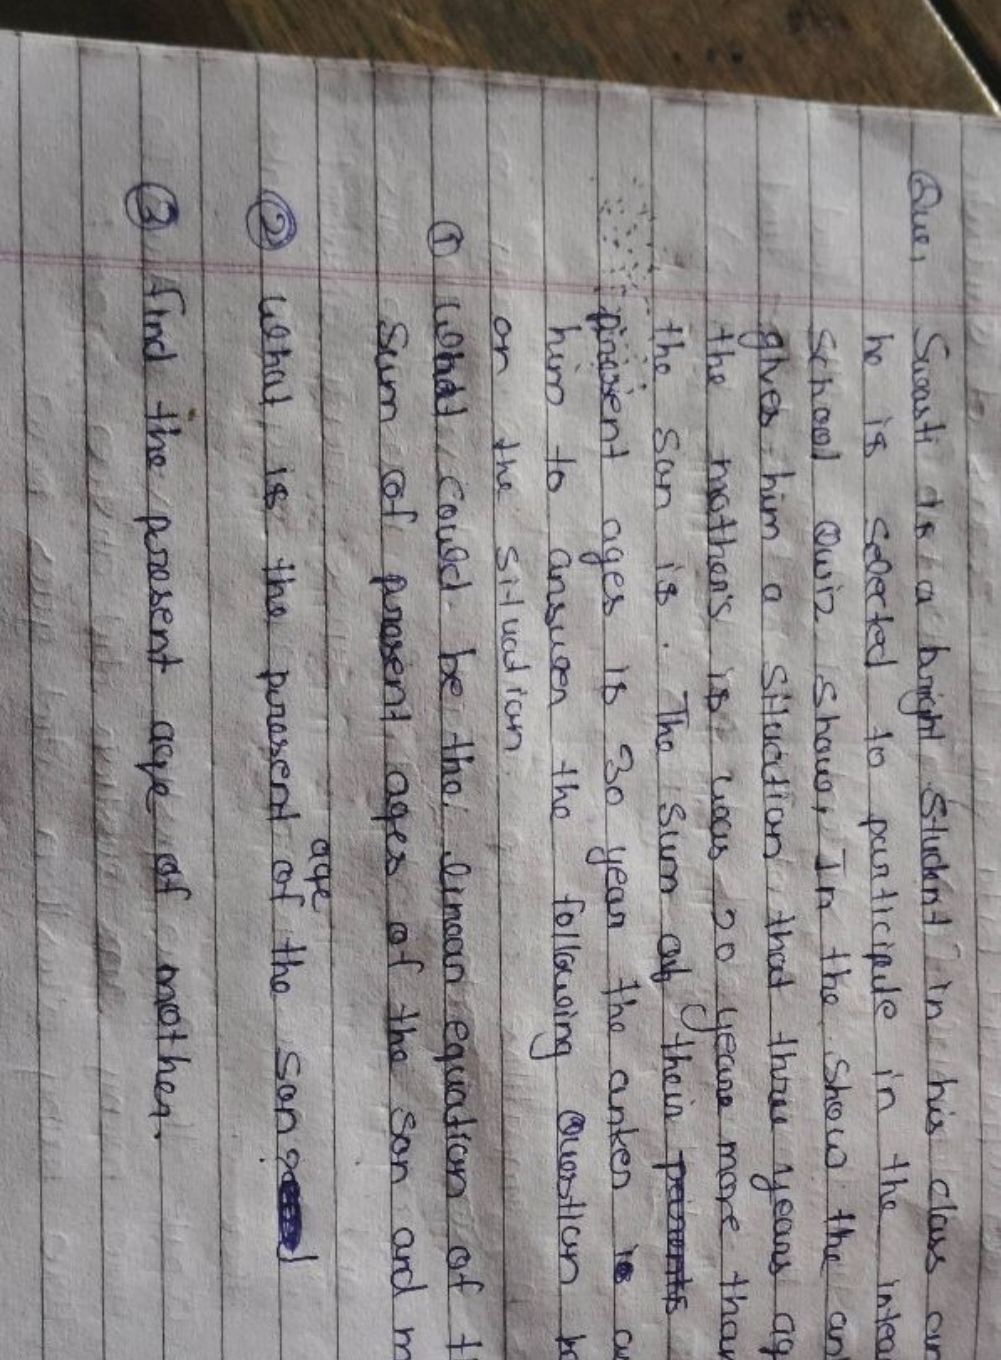 Que, Swasti is a bright student in his class an
he is selected to participate in the inter
School Quiz Show, In the show the an
gives him a situation that three years ag
the mother's is was 20 years more than
the son is. The sum of their
present ages is 30 year the anker
him to answer the following Question
on the situation
① What could be the linear equation of
Sum of present ages of the son and m
age
② What is the present of the son
③ find the present age of mother.